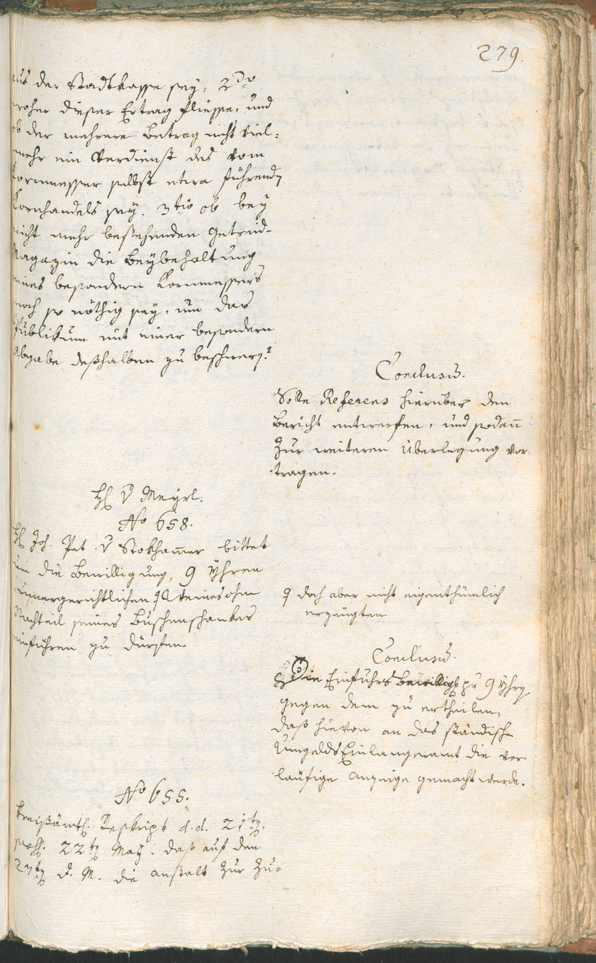 279.
aus der Stadtkasse sey, 2do
woher dieser Ertrag fliesse, und
ob der mehrere Betrag nicht viel-
mehr ein Verdienst des vom
Kornmesser selbst etwa führend
Kornhandels sey. 3tio ob bey
nicht mehr bestehenden Getreid-
Magazin die Beybehaltung
eines besondern Kornmessers
noch so nöthig sey, um das
Publikum mit einer besondern
Abgabe desshalben zu beschwer.?
Conclusum.
Solle Referens hierüber den
Bericht entwerfen, und sodann
zur weiteren Überlegung vor-
tragen.
H v Meyrl.
No 658.
H Joh. Pet. v Stokhamer bittet
um die Bewilligung, 9 Yhren
Weines ohne
Nachteil seines Buschenschankes
einführen zu dürfen
doch aber nicht eigenthümlich
erzeugten
Conclusum.
Die Einfuhrs zu 9 Yhrn
gegen dem zu ertheilen,
dass hievon an das ständische
Umgelds Einlangeramt die vor-
läufige Anzeige gemacht werde.
No 655.
Kreisämtl. Reskript d. d. 21ten
22ten May, dass auf den
27ten d. M. die Anstalt zur Zu-